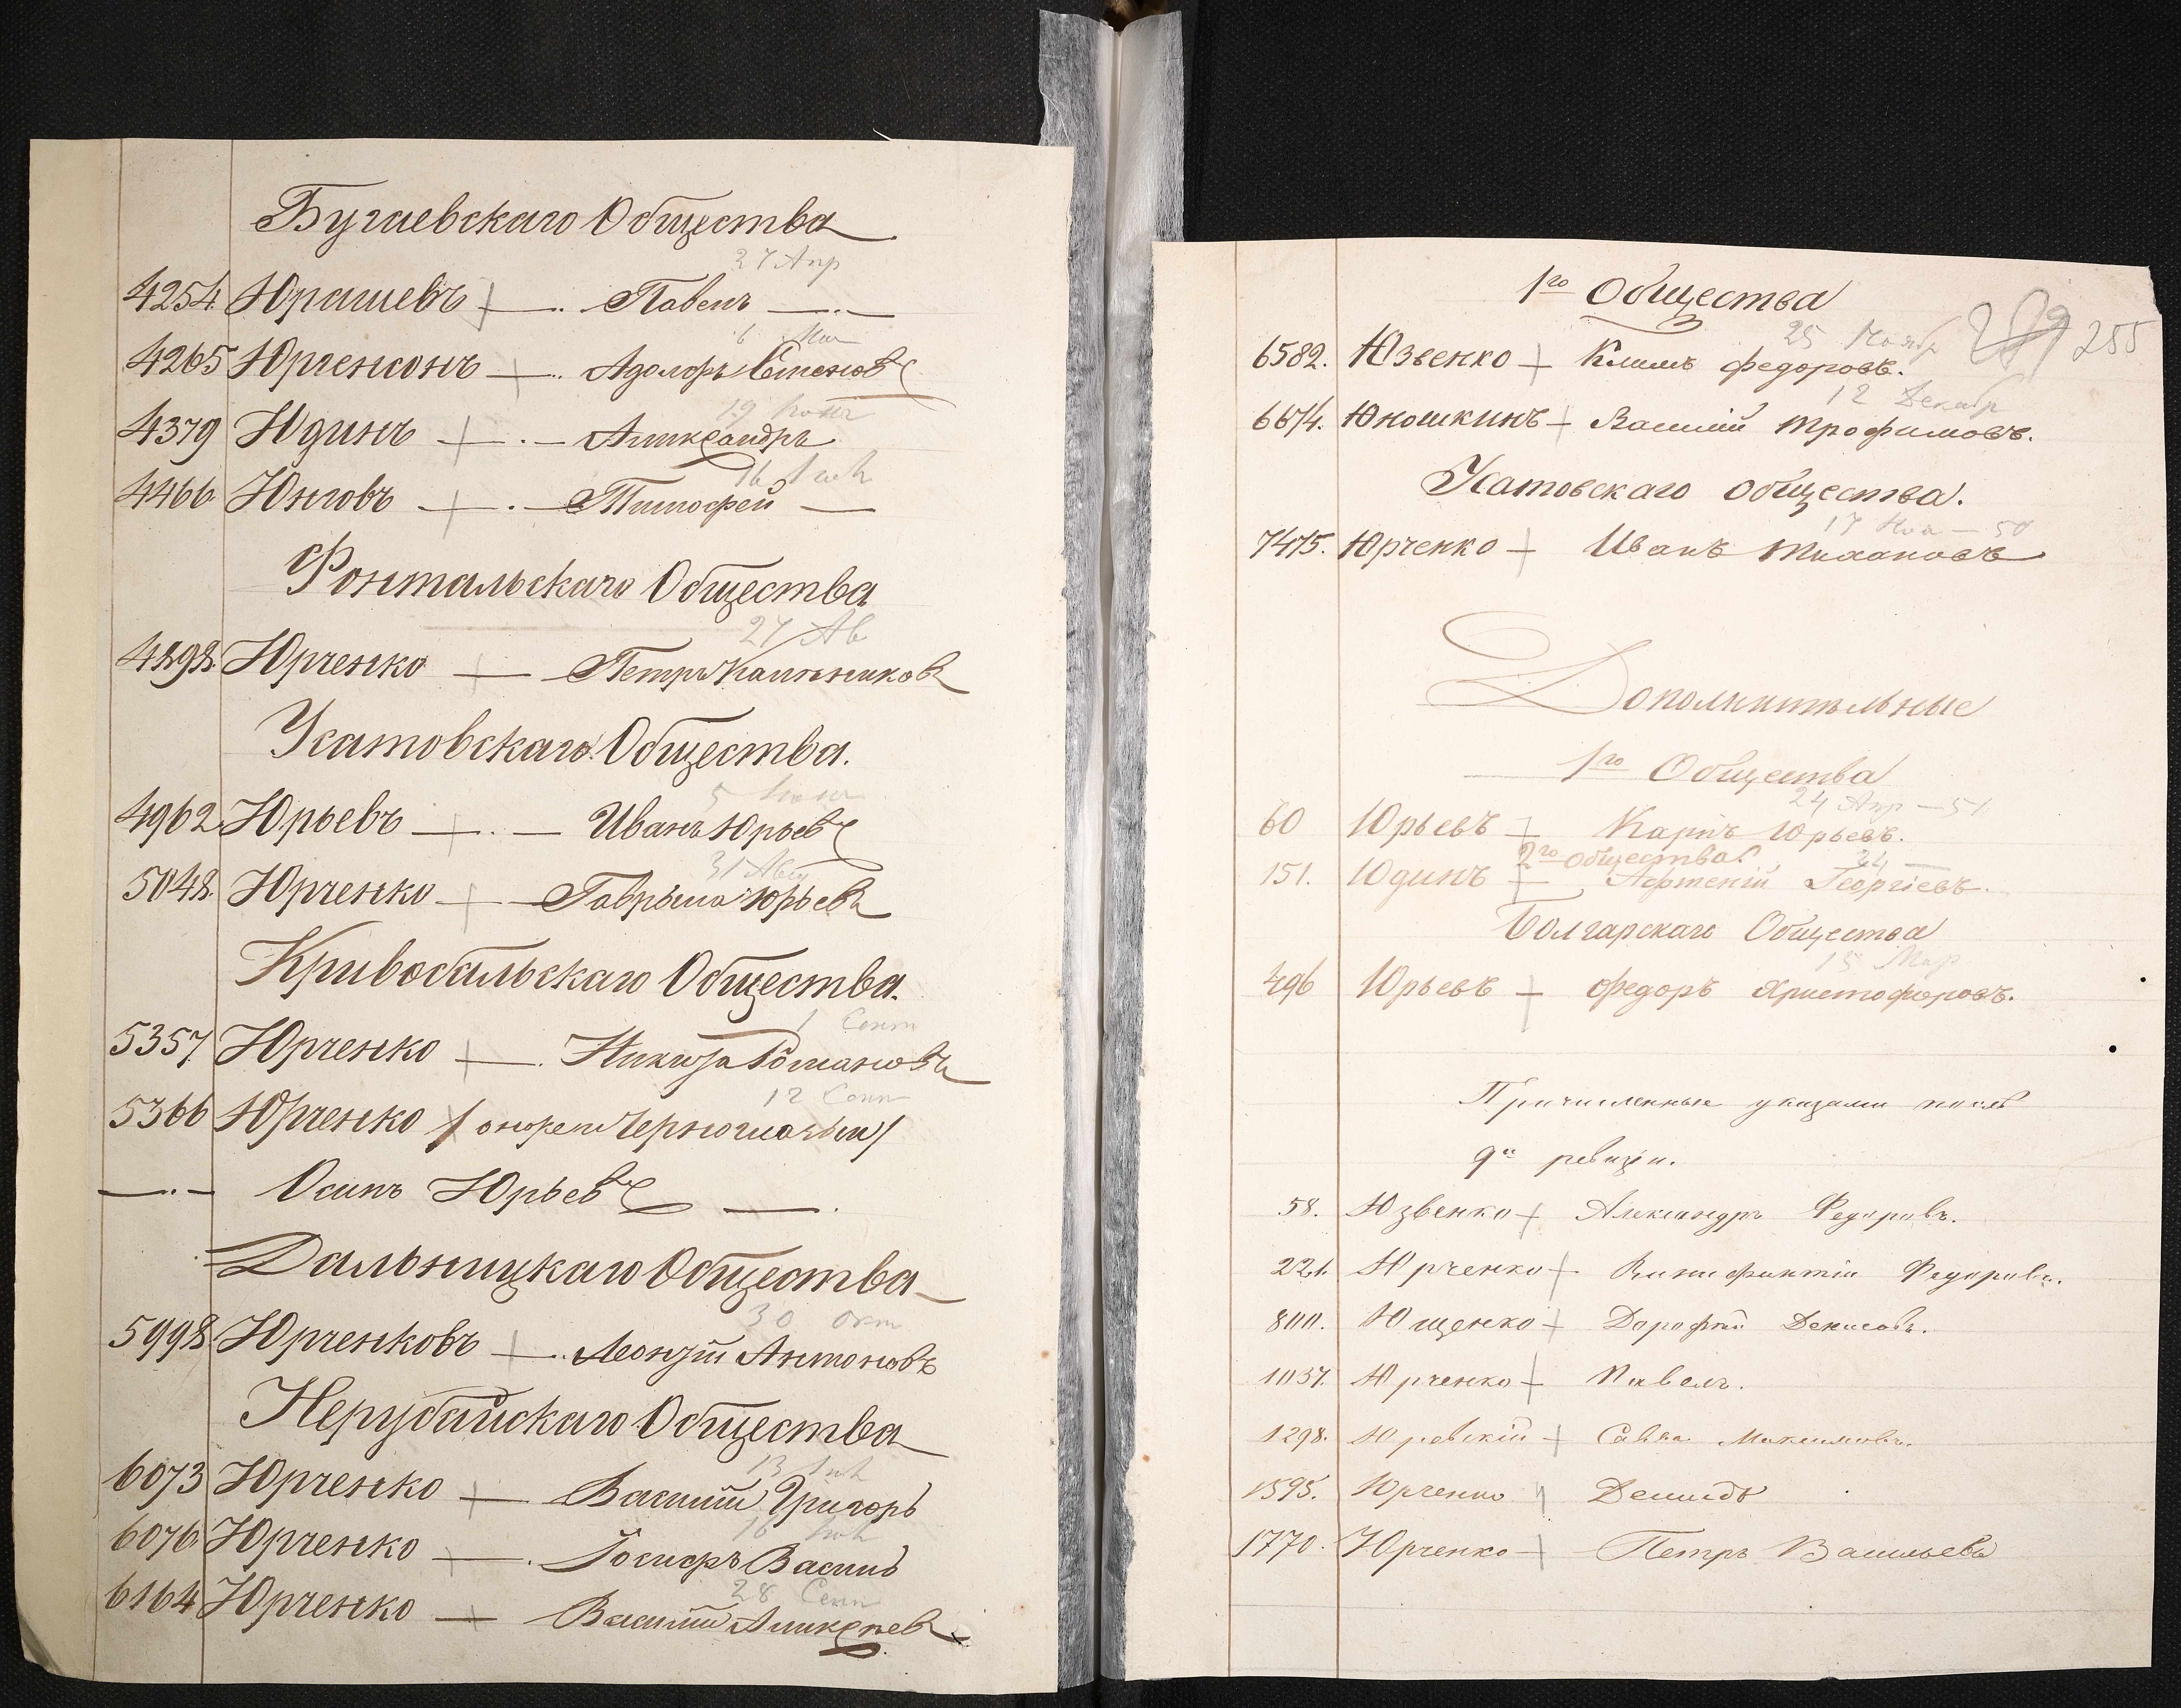 Бугаевскаго Общества
27 Апр
4254. Юрашевъ — Павелъ —
6 Маи
4265 Юргенсонъ — Адольфъ
19 Іюня
4379 Юдинъ — Александръ
16
4466 Юнговъ — Тимофей —
Фонтальскаго Общества
27 Ав
4898. Юрченко — Петръ Калѣниковъ
Усатовскаго Общества.
5
4962 Юрьевъ — Иванъ Юрьевъ
31 Авгу
5048. Юрченко — Гаврыла Юрьевъ
Кривобальскаго Общества.
1 Сент
5357 Юрченко — Никита Романовъ
12 Сент
5366 Юрченко / онъ же и Черногла /
—"— Осипъ Юрьевъ —
Дальницкаго Общества
30 окт
5998. Юрченковъ — Леонтій Антоновъ
Нерубайскаго Общества
13
6073 Юрченко — Василій Григорь
16
6076. Юрченко — Іосифъ Василь
28 Сент
6164 Юрченко — Василій Алексѣев
1го Общества
289 255
25 Ноябр
6582. Юзвенко — Климъ Федоровъ.
12 Декабр
6674. Юношкинъ — Василій Трофимовъ.
Усатовскаго общества.
17 — 50
7475. Юрченко — Иванъ
Дополнительные
1го Общества
24 Апр — 51
60 Юрьевъ — Карпъ Юрьевъ.
2го общества 24 —
151. Юдинъ — Афтеній Георгіевъ.
Болгарскаго Общества
15 Мар
496 Юрьевъ — Федоръ Христофоровъ.
Причисленные указами послѣ
9й ревизіи.
58. Юзвенко — Александръ Федоровъ.
221. Юрченко — Федоровъ.
800. Ющенко — Дорофей Денисовъ.
1037. Юрченко — Павелъ.
1298. Юревскій — Савва Максимовъ.
1595. Юрченко Демидъ
1770. Юрченко — Петръ Васильевъ